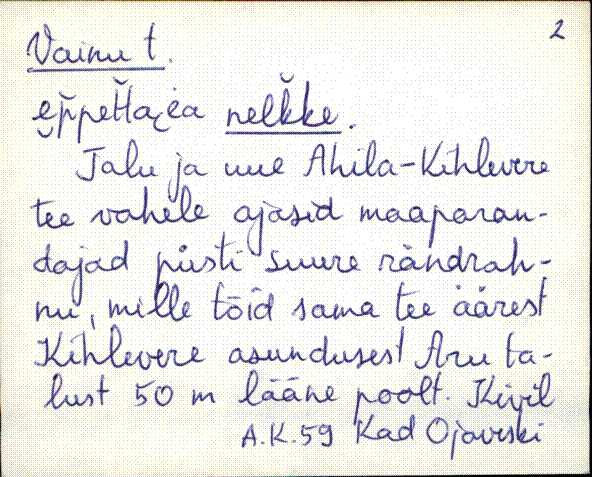 2
Vainu t.
nelk̆ke.
Talu ja uue Ahila-Kihlevere
tee vahele ajasid maaparan-
dajad püsti suure rändrah-
nu, mille tõid sama tee äärest
Kihlevere asundusest Aru ta-
lust 50 m lääne poolt. Kivil
A.K.59 Kad Ojaveski